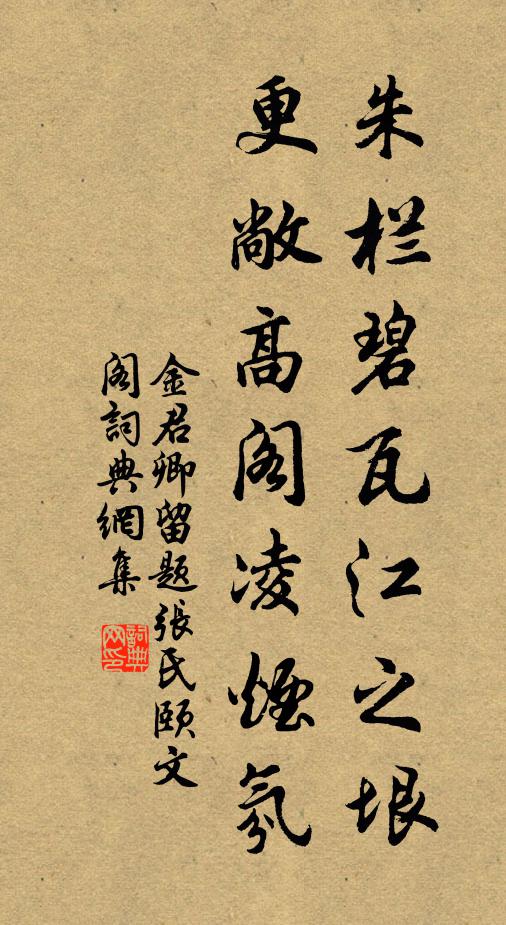 朱栏碧瓦江之垠
更敞高阁凌烟氛
金君卿留题张氏颐文
阁词典网集
词典网印